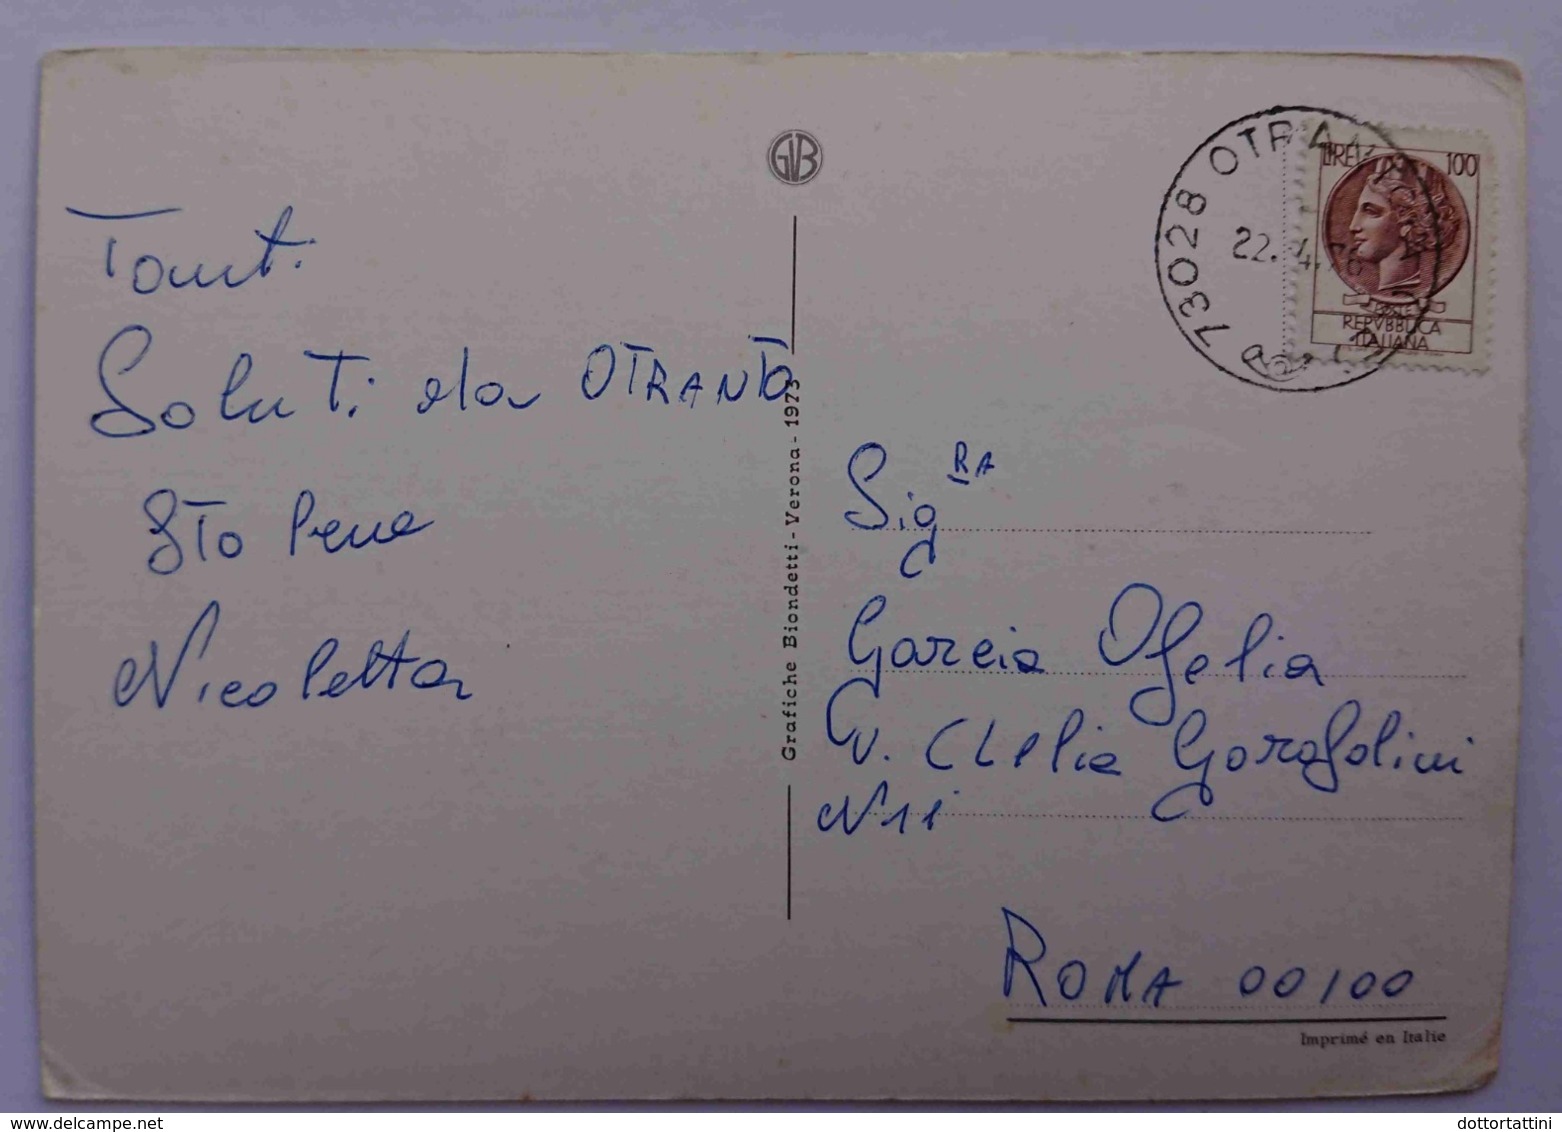 GVB
Tanti
Saluti da OTRANTO
Sto bene
Nicoletta
Grafiche Biondetti - Verona - 1973
73028 OTRANTO
22. 4. 76
LIRE 100
POSTE
REPVBBLICA
ITALIANA
Sig RA
Garcia Ofelia
V. CLelia Garofolini
N 11
ROMA 00100
Imprimé en Italie
dottortattini